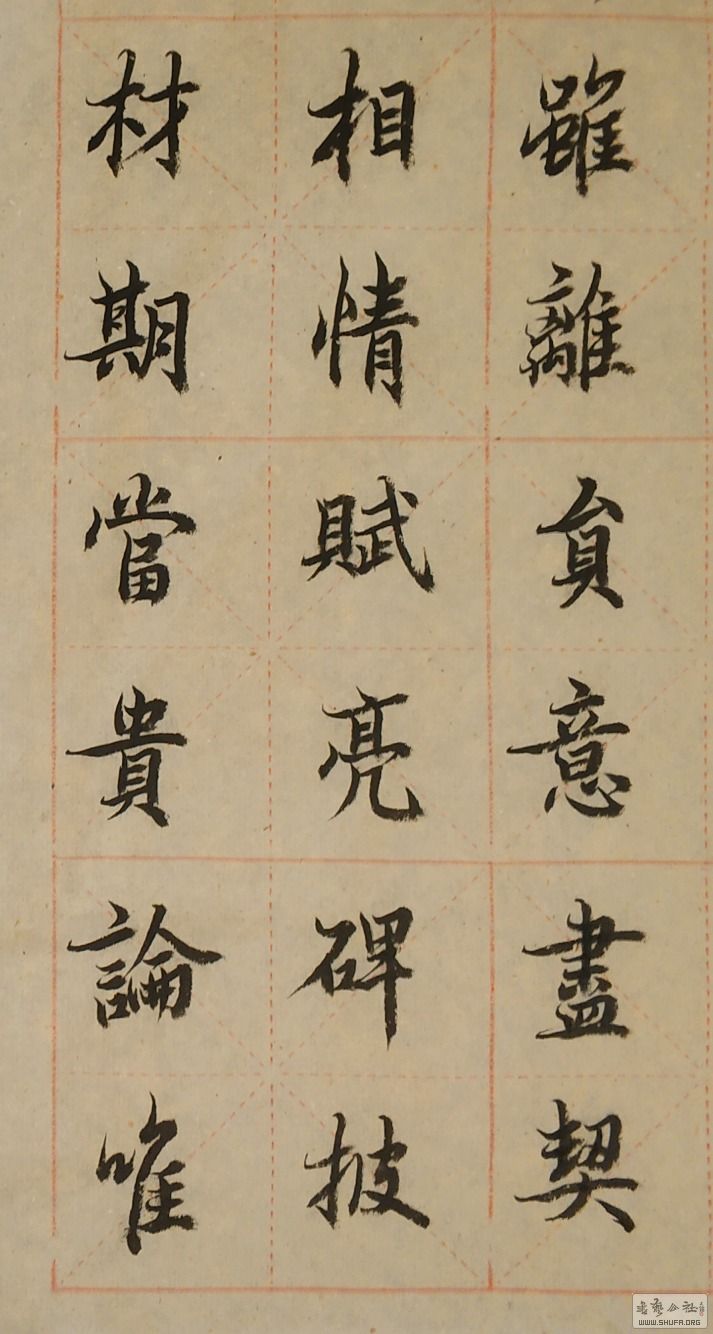 雖離貟意盡契
相情賦亮碑披
材期當貴論唯
書藝公社
WWW.SHUFA.ORG